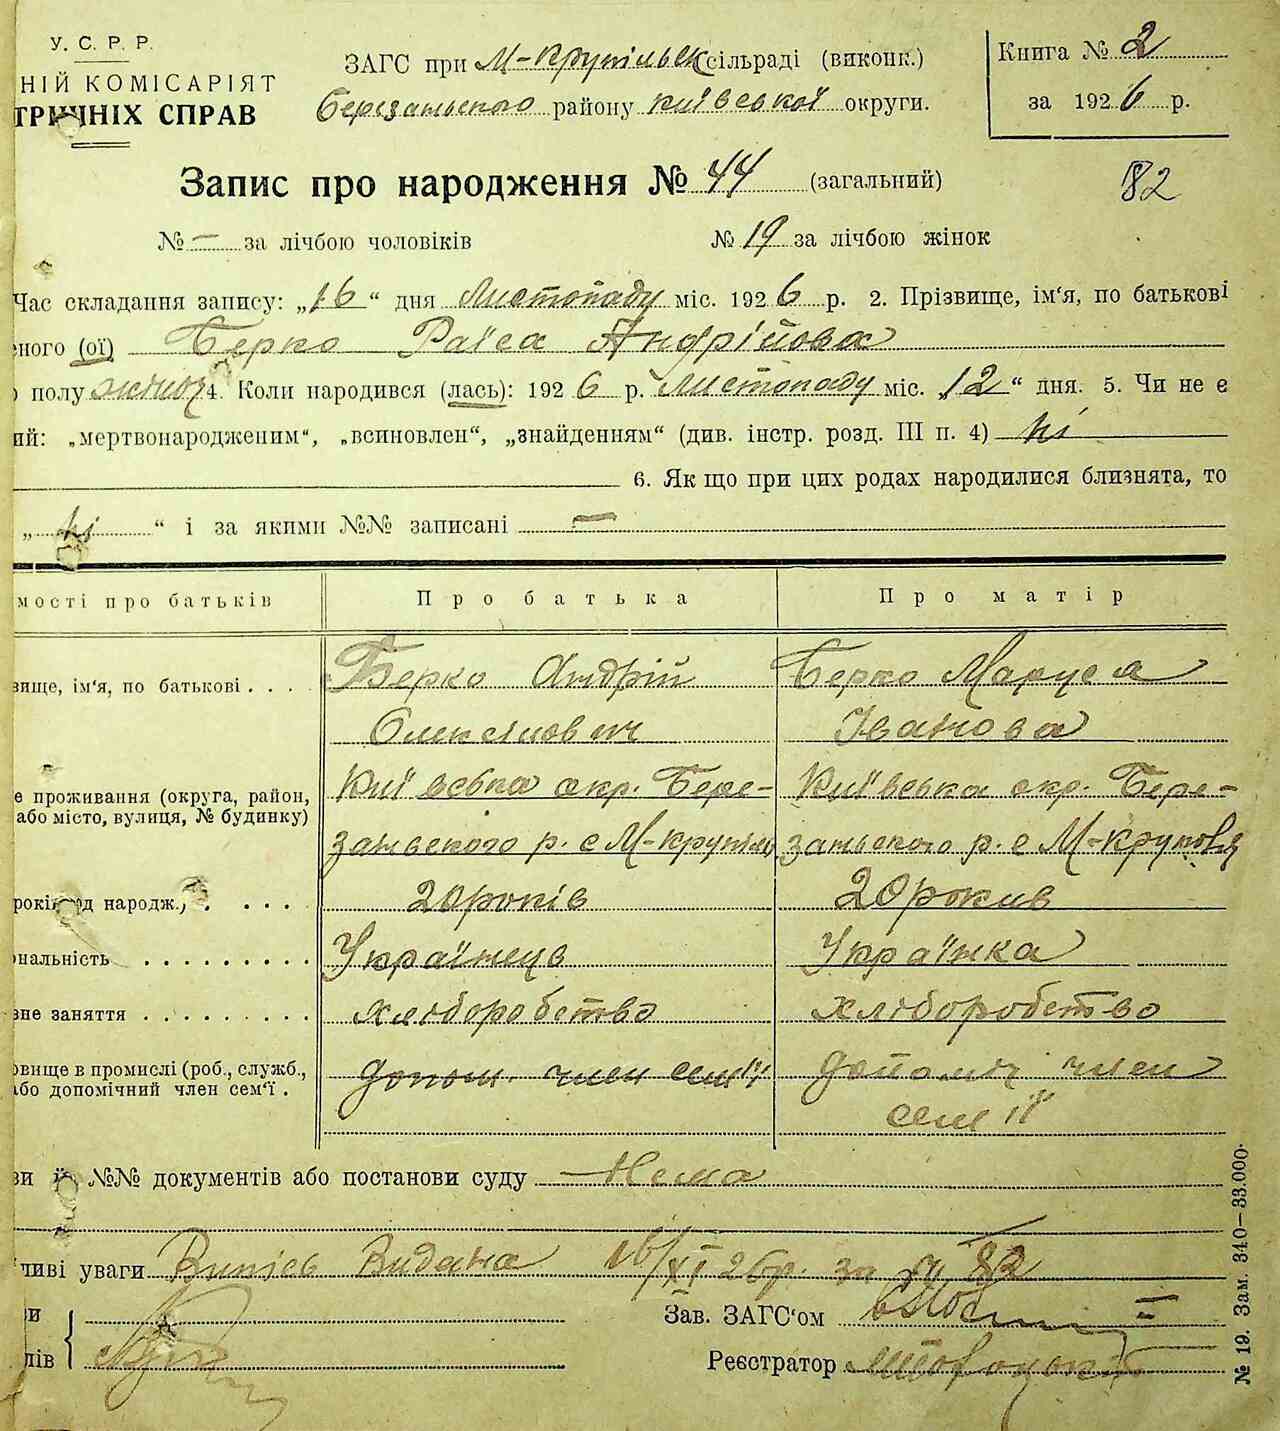 У. С. Р. Р.
НІЙ КОМІСАРІЯТ
ТРІШНІХ СПРАВ
ЗАГС при М-Крупільск сільраді (виконк.)
Березанського району Київської округи.
Книга № 2
за 1926 р.
Запис про народження № 44 (загальний)
82
№ — за лічбою чоловіків № 19 за лічбою жінок
Час складання запису: „16“ дня Листопаду міс. 1926 р. 2. Прізвище, ім‘я, по батькові
ного (ої) Берко Раїса Андрійова
полу жіноч 4. Коли народився (лась): 1926 р. Листопаду міс. „12“ дня. 5. Чи не є
ий: „мертвонародженим“, „всиновлен“, „знайденням“ (див. інстр. розд. III п. 4) ні
6. Як що при цих родах народилися близнята, то
„ ні “ і за якими №№ записані —
мості про батьків Про батька Про матір
вище, ім‘я, по батькові . . . . Берко Андрій Берко Маруся
Олексійович Іванова
е проживання (округа, район, Київська окр. Бере- Київська окр. Бере-
або місто, вулиця, № будинку)
занського р. с М-крупіль занського р. с М-Круполя
років од народж.) . . . . 20 років 20 роков
ональність . . . . . . . . . Українець Українка
вне заняття . . . . . . . . . хліборобство хліборобство
овище в промислі (роб., служб., допом. член сем'ї допоміч член
або допомічний член сем‘ї . сем'ї
ви й №№ документів або постанови суду Нема
ливі уваги Випісь Видана 16/XI 26р. за № 82
ви
Зав. ЗАГС‘ом
лів
Реєстратор
№ 19. Зам. 340—33.000.